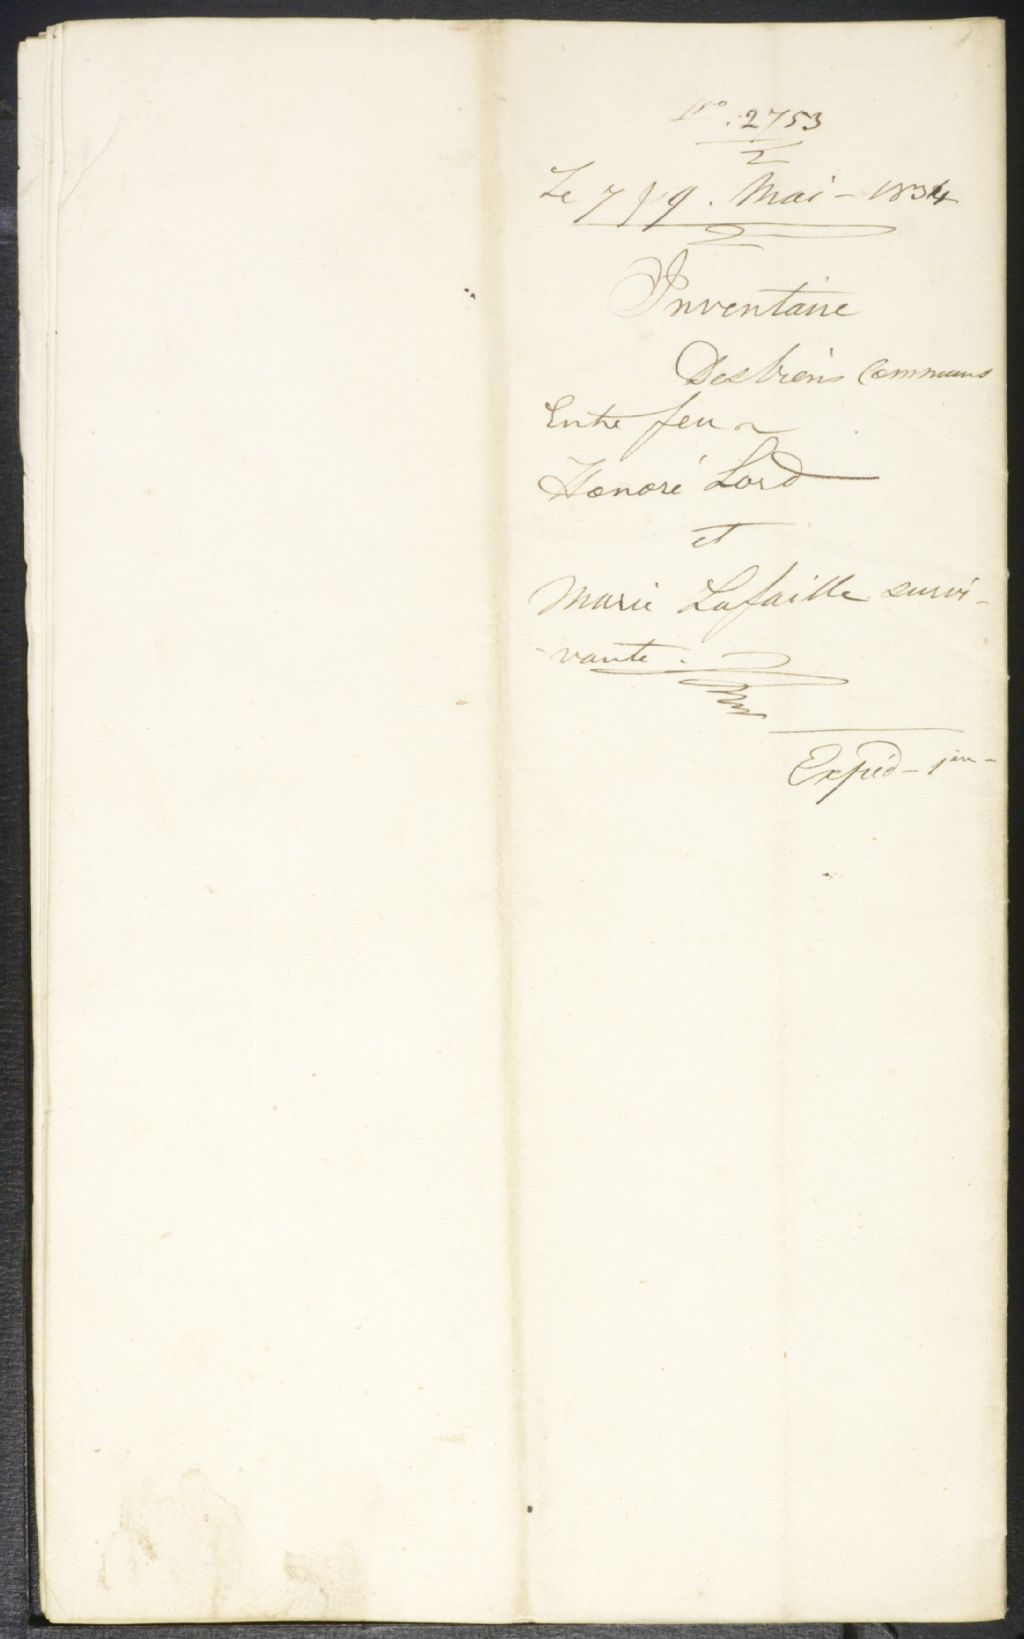 No. 2753
Le 7 & 9. Mai - 1834
Inventaire
Des biens Communs
Entre feu
Honoré Lord
et
Marie Lafaille survi-
-vante.
Expéd -